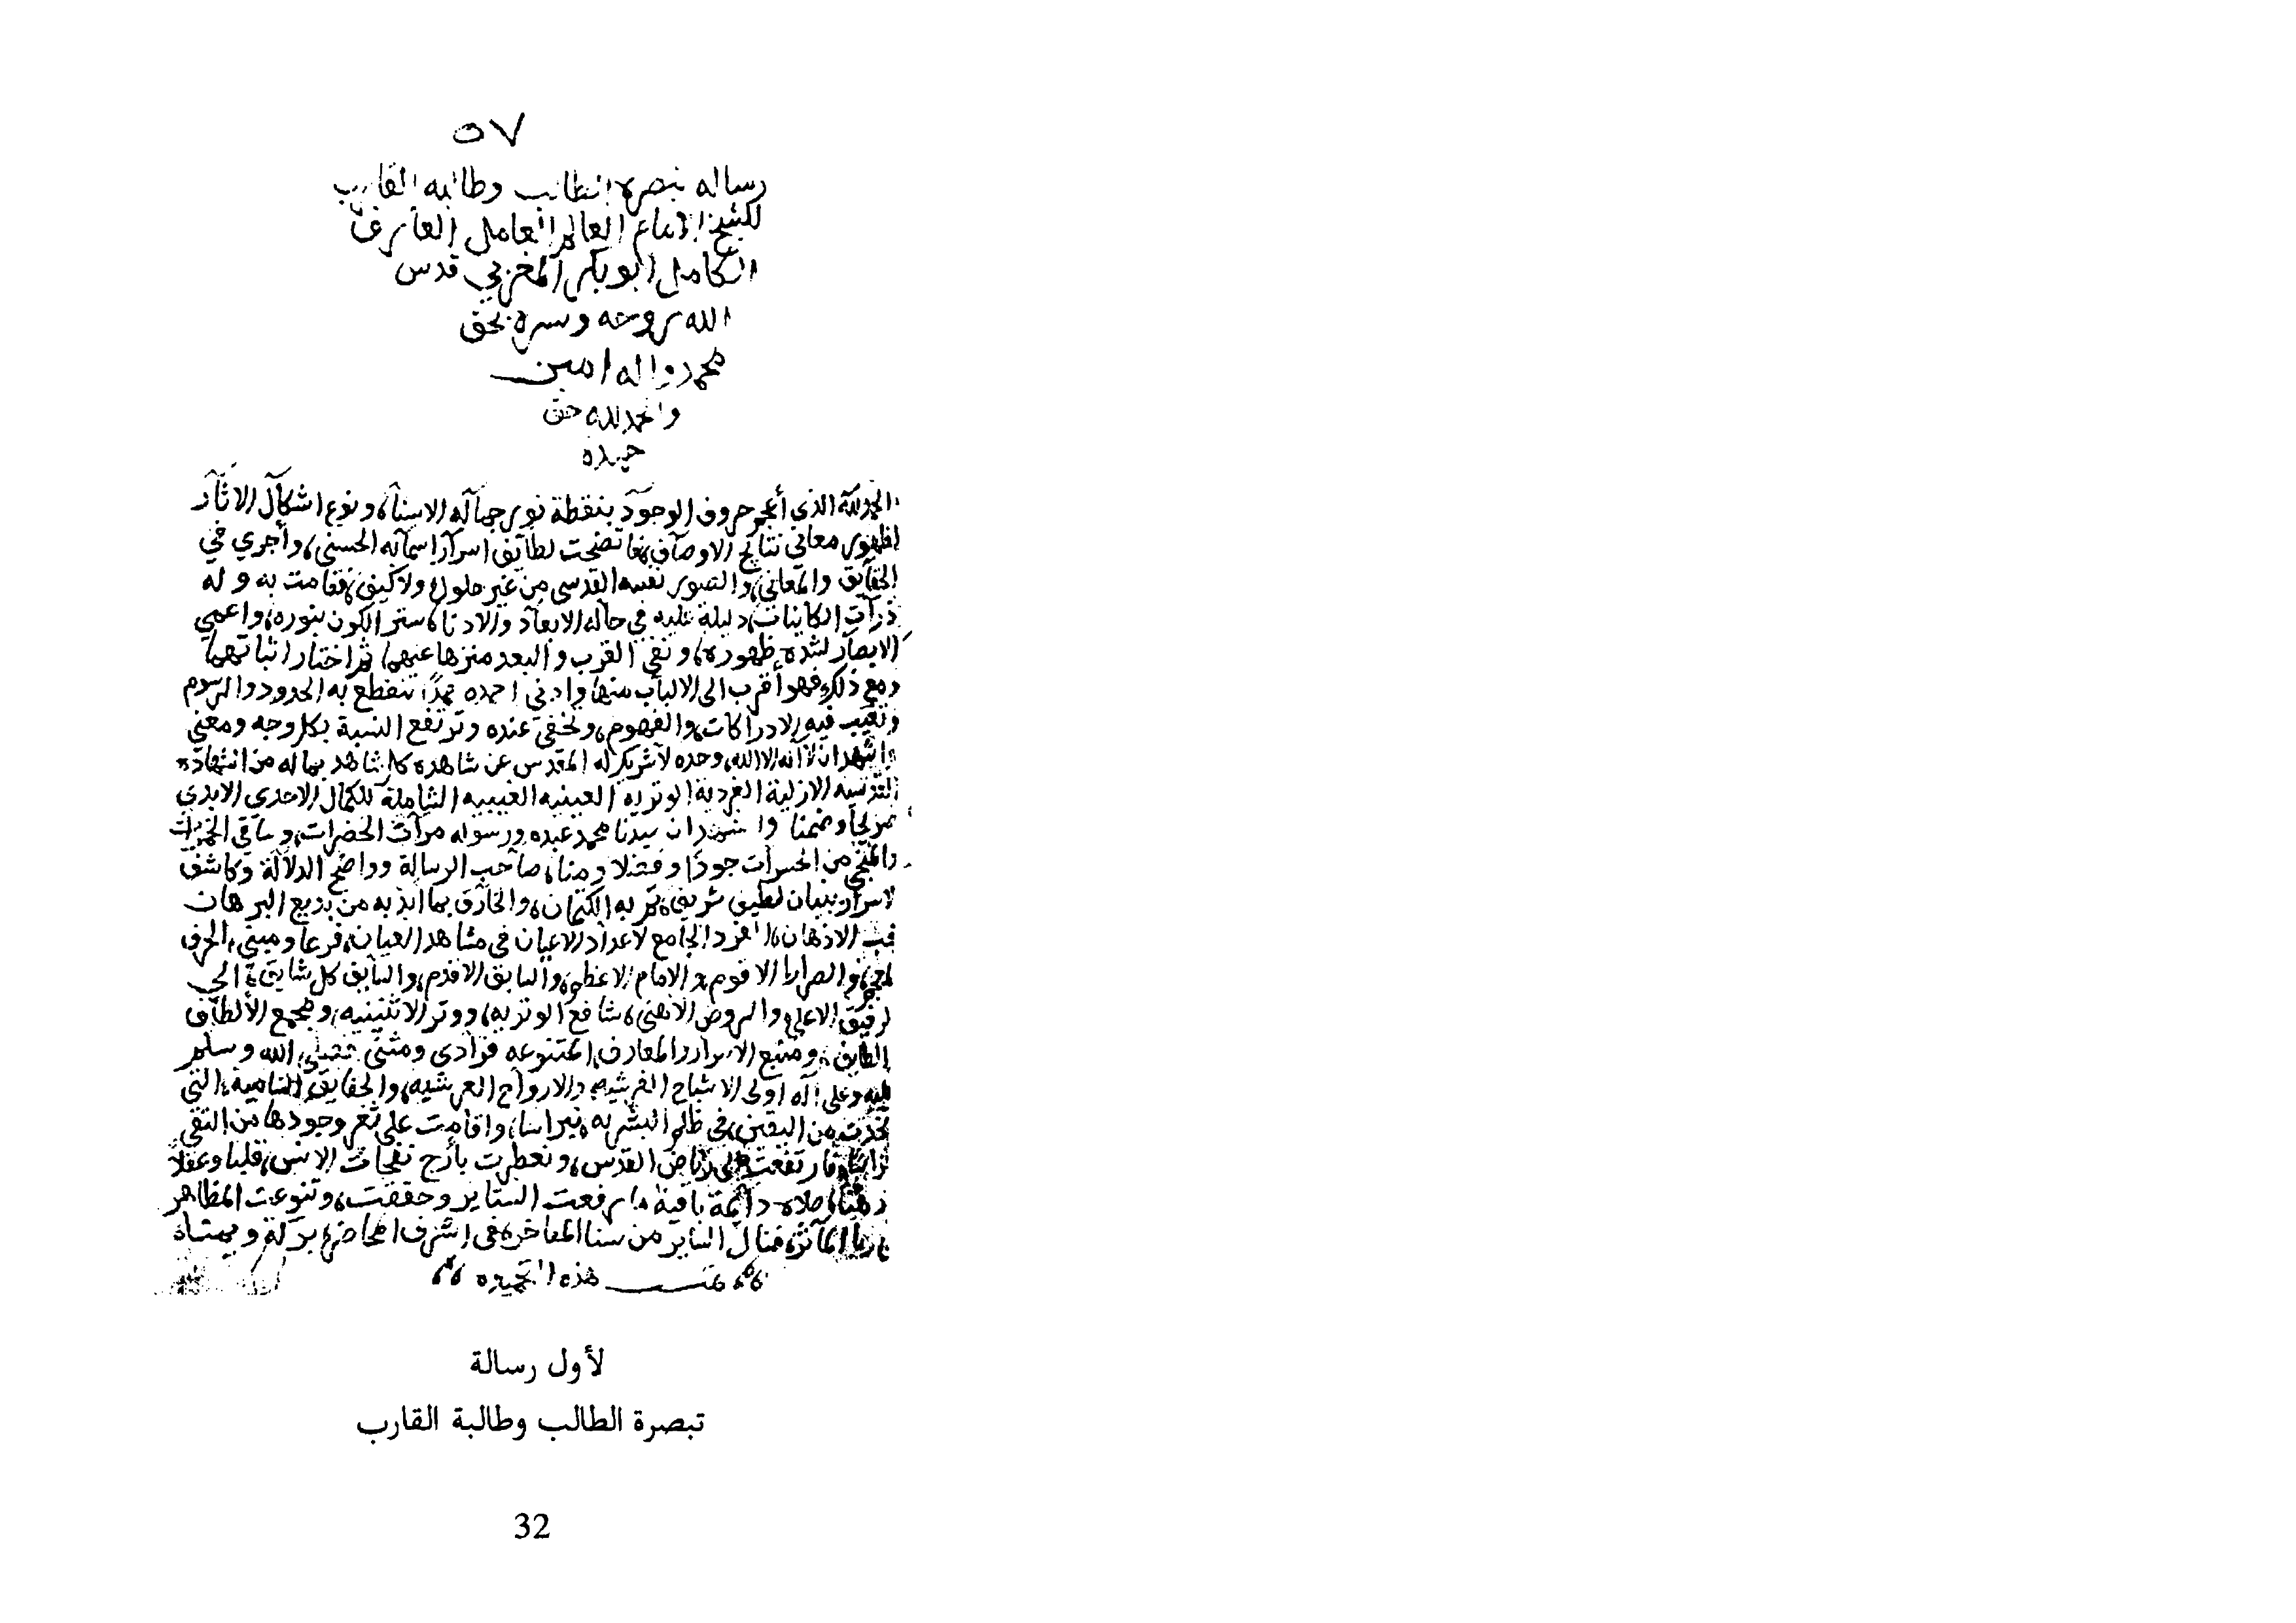 ٥٧
رساله تبصرة الطالب وطالبه القارب
للشيخ الامام العالم العامل العارف
الكامل ابو بكر المغربي قدس
الله روحه وسره بحق
محمد واله امين
والحمد لله حق
حمده
الحمد لله الذي أعجم حروف الوجود بنقطة نور جماله الاسنا، ونوع اشكال الاثار
معاني نتايج الاوصاف لطايف اسرار اسمآئه الحسنى، وأجرى في
الحقآيق والمعاني، والصور نفسه القدسي من غير حلول ولا كيف، فقامت به وله
ذرآت الكاينات، دليلة عليه في حاله الابعاد والادنا، ستر الكون بنوره، واعمى
الابصآر لشده ظهوره، ونفى القرب والبعد منزها عنهما ثم اختار اثباتهما
ومع ذلك فهو أقرب الى الالباب منها وادنى احمده حمدًا تنقطع به الحدود والرسوم
وتغيب فيه الادراكات، والفهوم، وتخفى عنده وترتفع النسبة بكل وجه ومعنى
واشهد ان لآ اله الا الله، وحده لا شريك له المقدس عن شاهده كل شاهد بما له من
الازلية الفردية الوتريه العينيه الغيبيه الشاملة للكمال الاحدي الابدي
وضمنا واشهد ان سيدنا محمد عبده ورسوله مرآت الحضرات، وساقي
والمنجي من الحسرات جودًا وفضلا ومنا، صاحب الرسالة وواضح الدلالة وكاشف
لاسرار ببيان لطيف شريف، به الكتمان، والخارق بما ايد به من بديع البرهان
الاذهان، الفرد الجامع لاعداد الاعيان في مشاهد العيان، فرعا ومبنى، الحرف
والصراط الاقوم، والامام الاعظم، والسابق الاقدم، والسآيق كل شايق، الى
الرفيق الاعلى، والروض الاهنى، شافع الوتريه، ووتر الاثنينيه، ومجمع الألطاف
ومنبع الاسرار والمعارف المتنوعه فرادى ومثنى فصلى الله وسلم
عليه وعلى آله اولى الاشباح الفرشيه، والارواح العرشيه، والحقايق، التى
من اليقين، في ظلم البشريه، نبراسا، واقامت على ثغر وجودها من التقى
فارتفعت الى رياض القدس، وتعطرت بأرج نفحات الانس، قلبا وعقلاً
صلاه دآئمة باقية ما رفعت الستاير وحققت، وتنوعت المظاهر
المآثر، فنال الساير من سنا المفاخر، في اشرف المحاضر، بركة ويمنا
تمت هذه التحميده
لأول رسالة
تبصرة الطالب وطالبة القارب
32